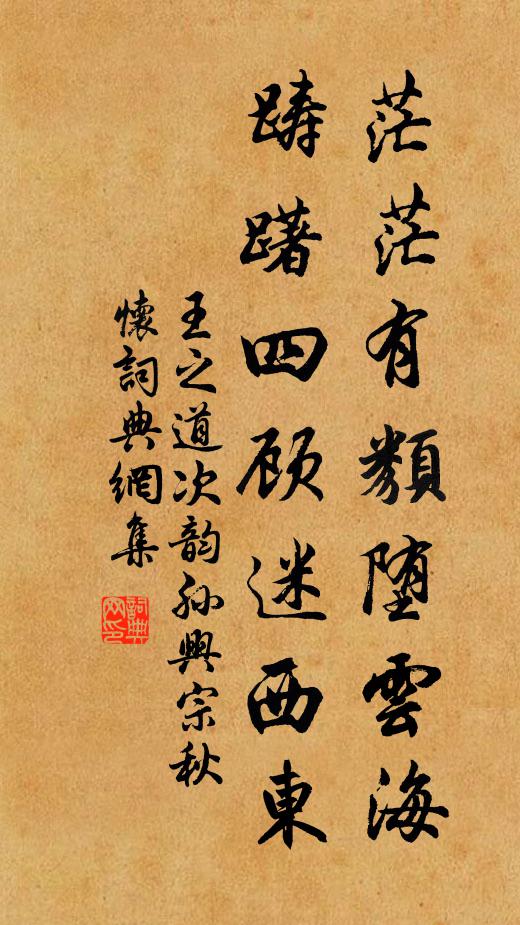 茫茫有類堕雲海
踌躇四顾迷西東
王之道次韵孙興宗秋
懷詞典網集
詞典网印